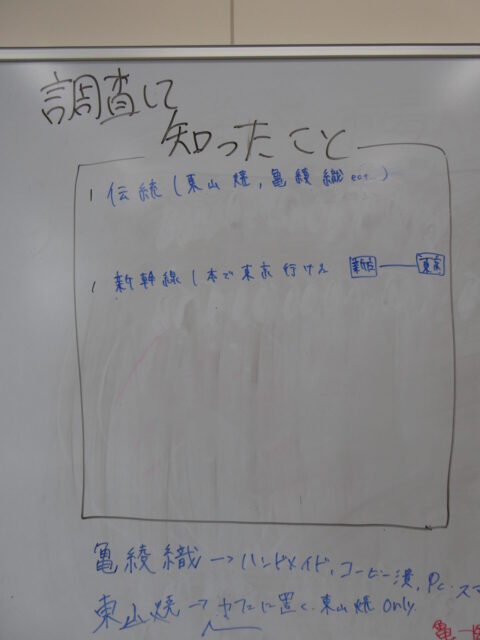 調査して
知ったこと
伝統(東山焼,亀綾織ect.)
新幹線1本で東京行ける 新庄 東京
亀綾織→ハンドメイド,コーヒー漬,PC・スマ
東山焼→カフェに置く.東山焼only.